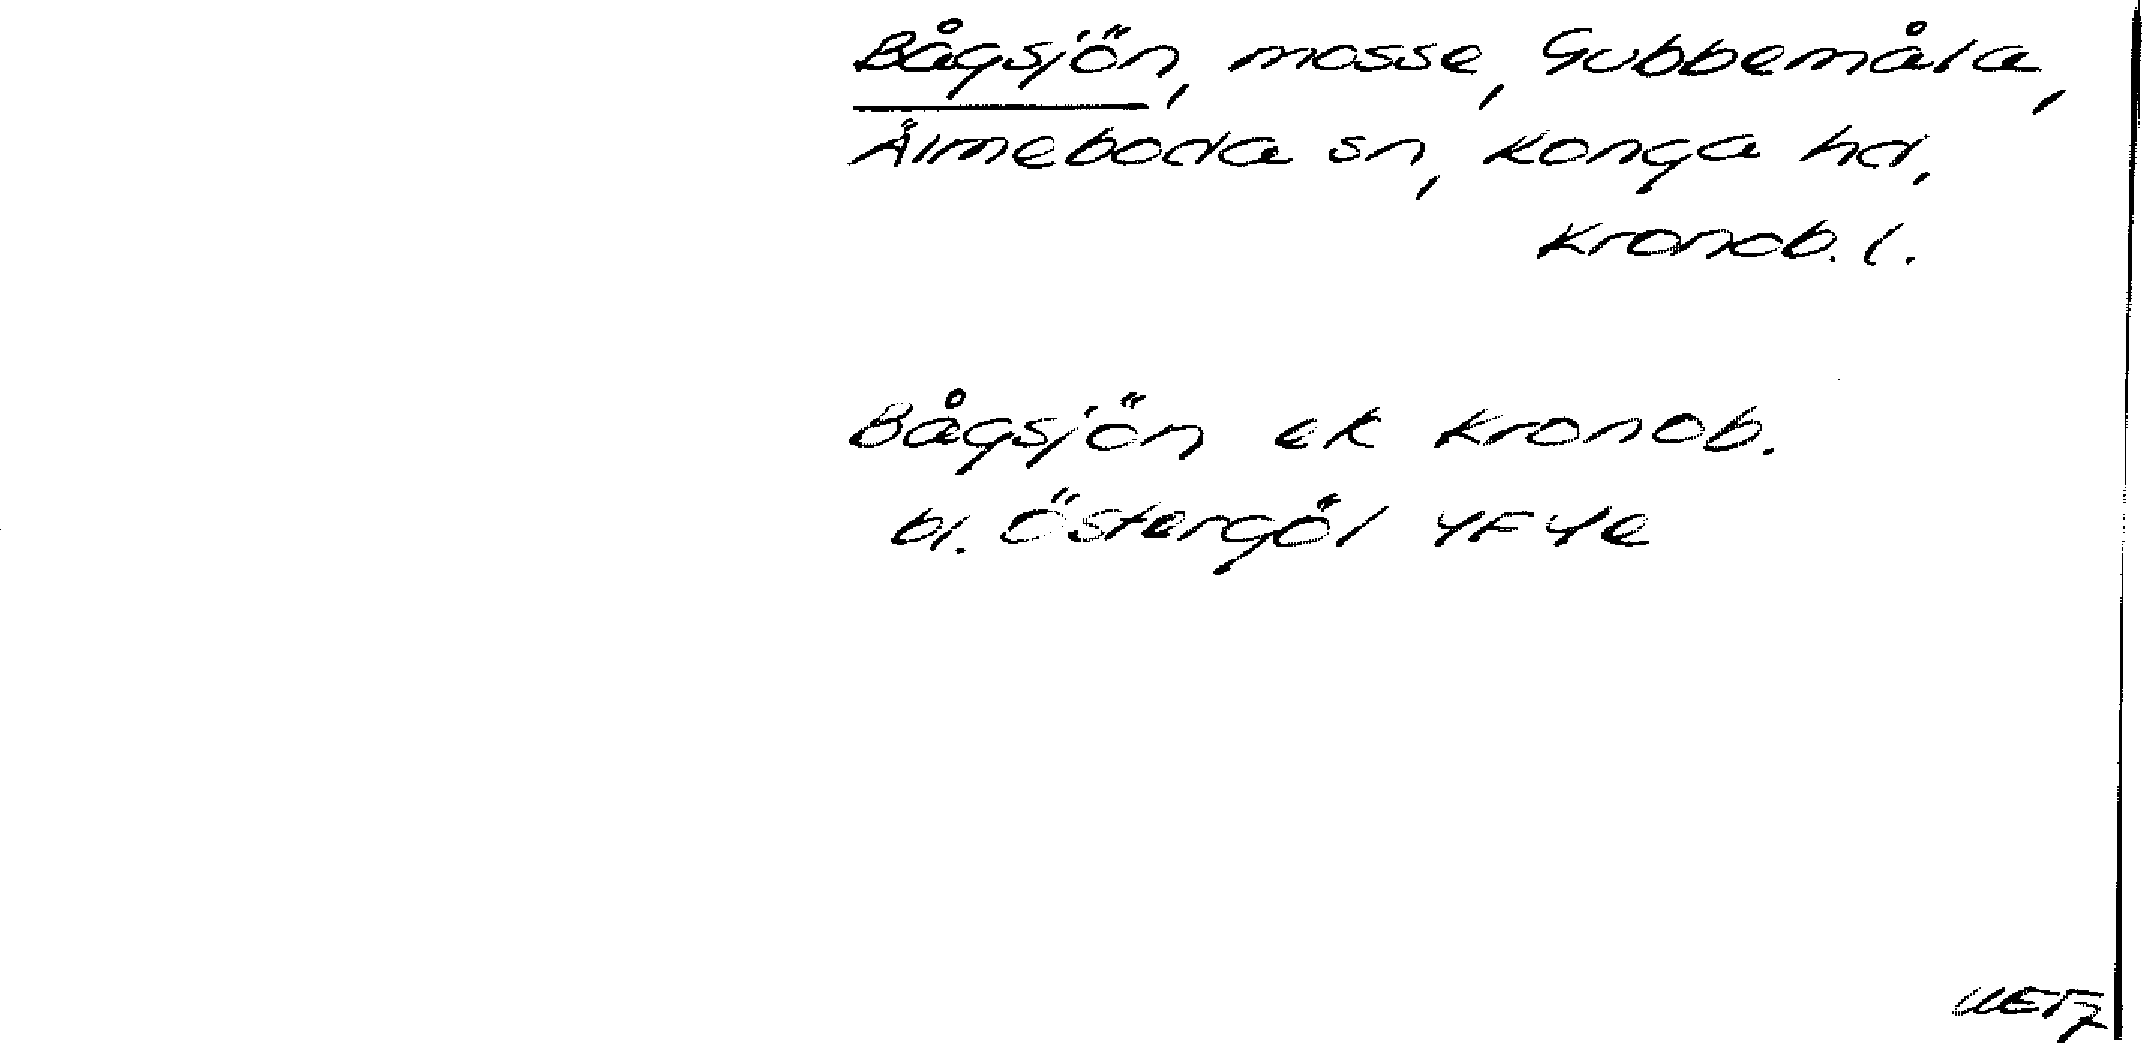 Bågsjön, mosse, Gubbemåla,
Älmeboda sn, Konga hd,
Kronob. l.
Bågsjön ek Kronob.
bl. Östergöl 4F4e